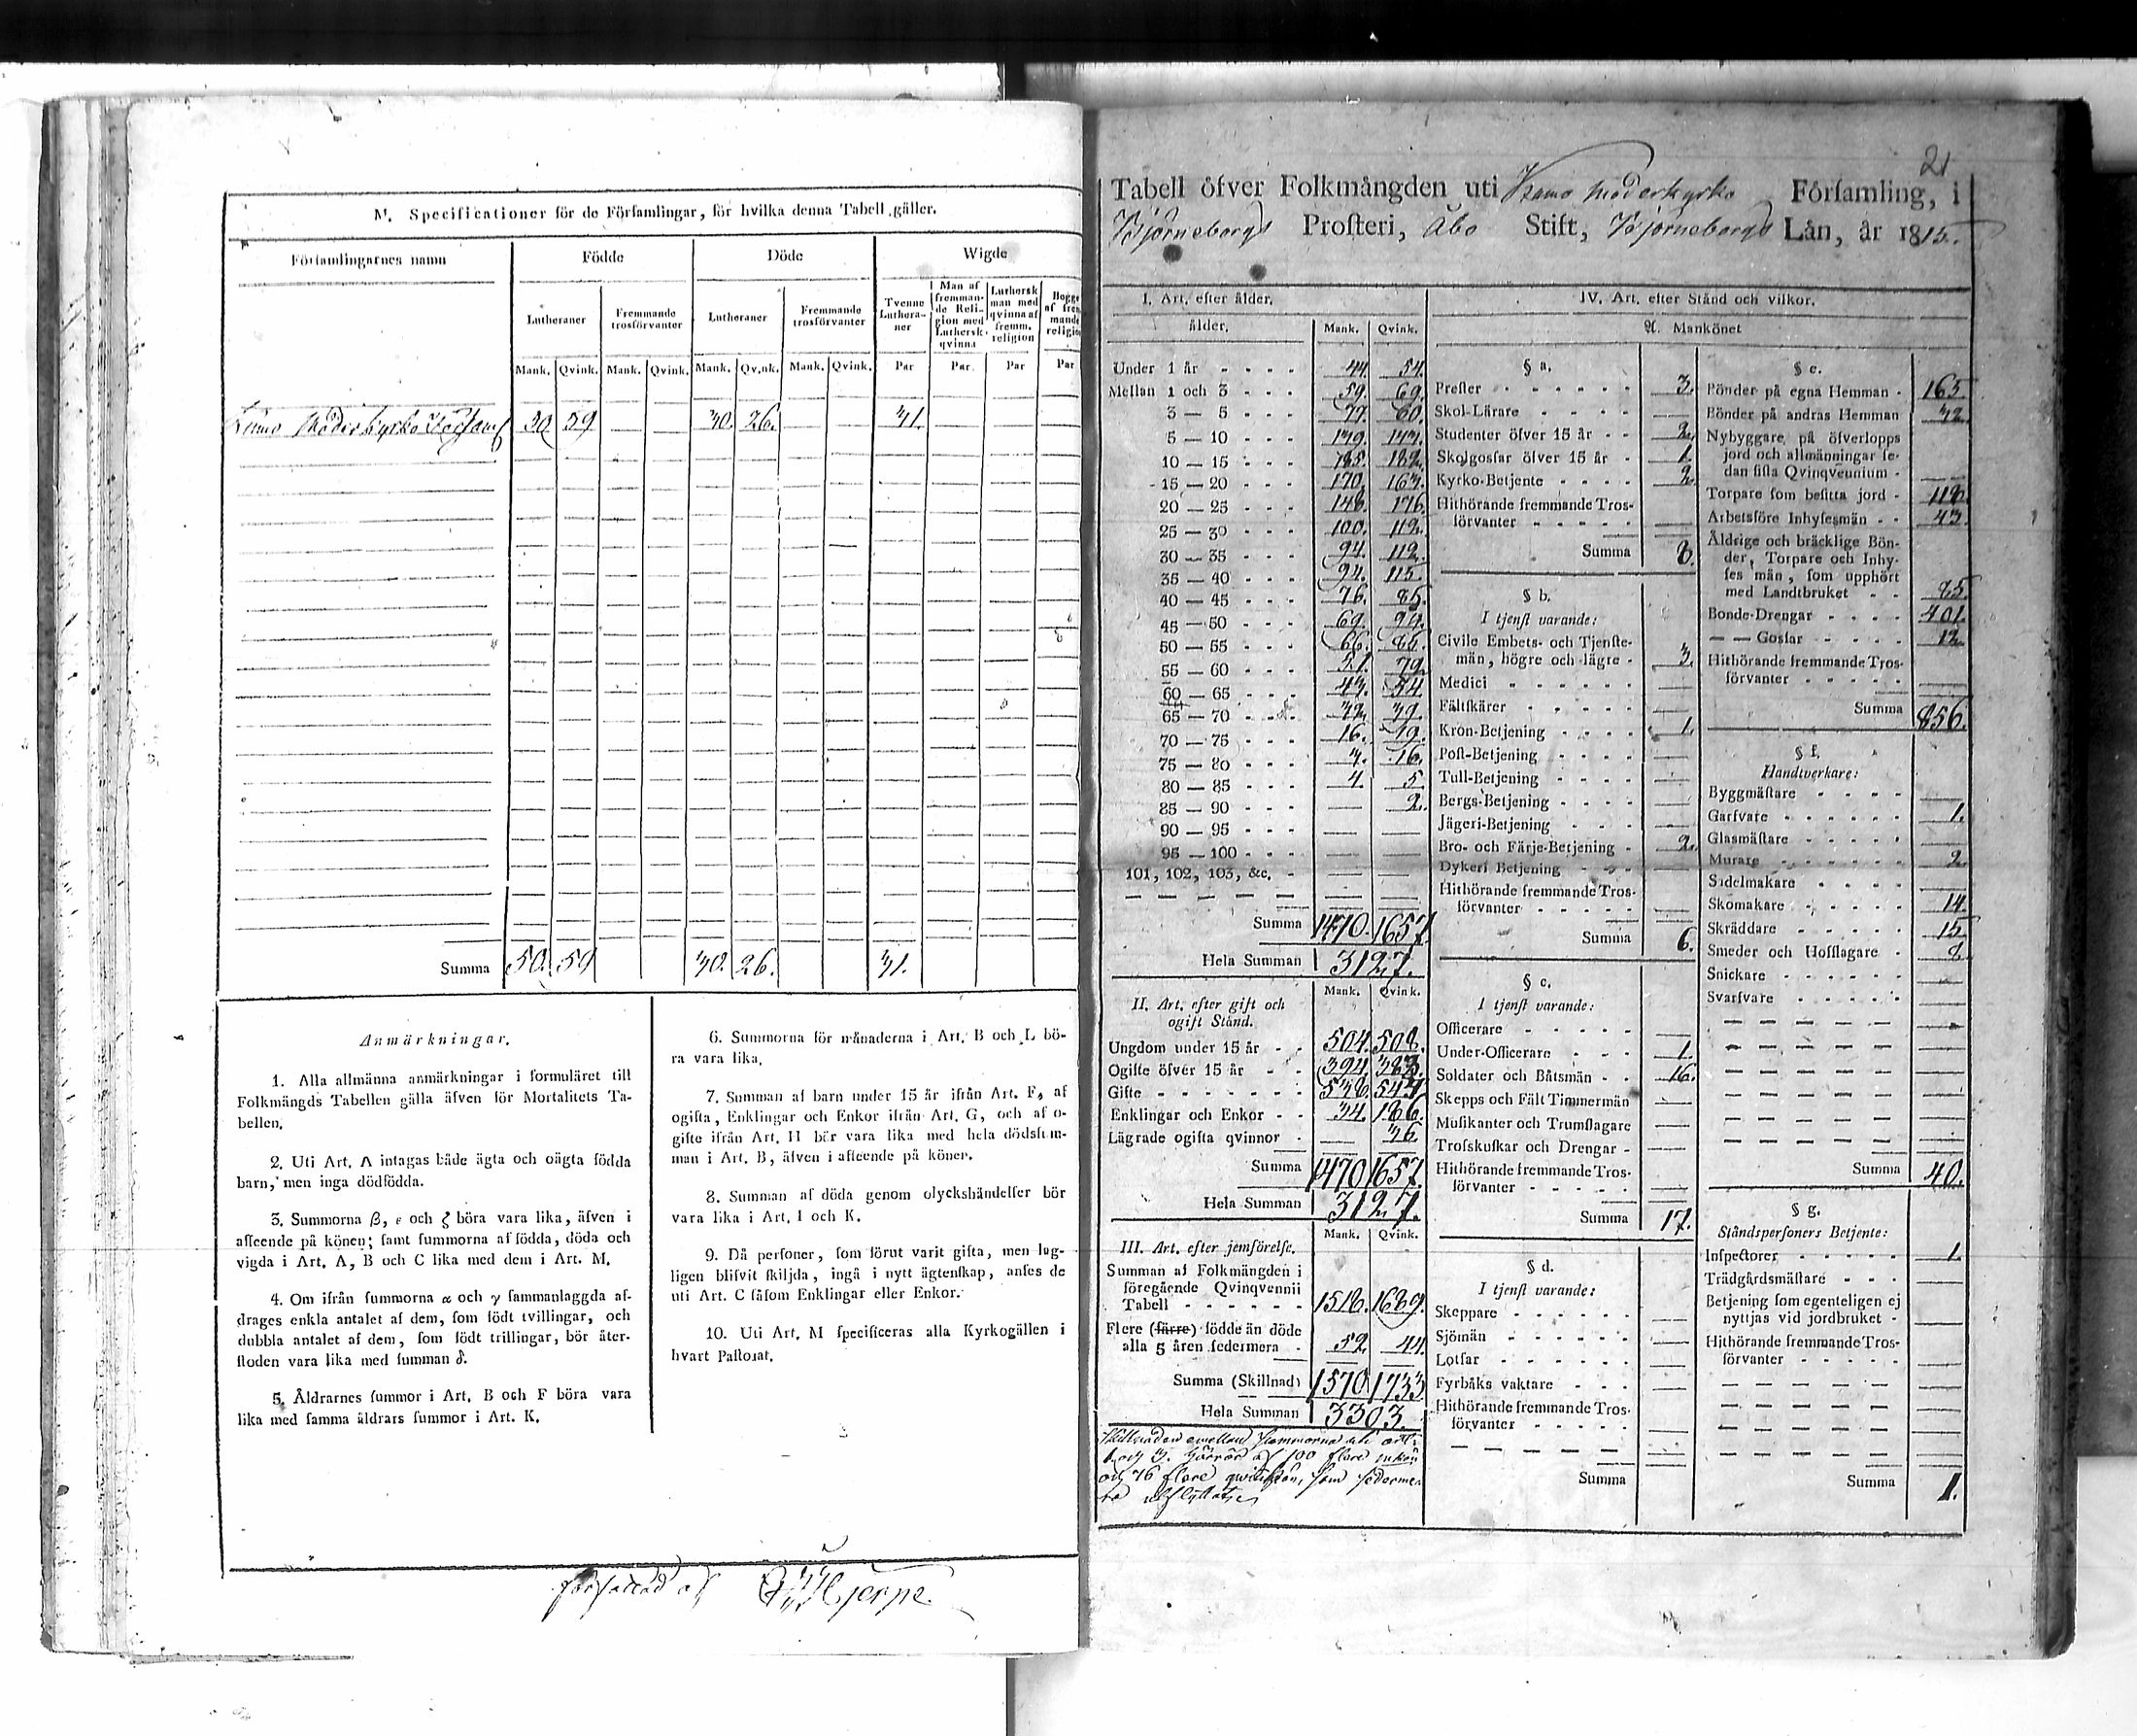 M. Specificationer för de Församlingar, för hvilka denna Tabell gäller.
Församlingarnes namn
Födde
Döde
Wigde
Lutheraner
Fremmande trosförvanter
Lutheraner
Fremmande trosförvanter
Tvenne Lutheraner
Man af fremmande Religion med Luthersk qvinna
Luthersk man med qvinna af fremm. religion
Mank. Qvink. Mank. Qvink. Mank. Qvink. Mank. Qvink. Par Par Par Par
Kumo Moderkyrko Församl 50 59 30. 26. 31.
Summa 50. 59 30. 26. 31.
Anmärkningar.
1. Alla allmänna anmärkningar i formuläret till
Folkmängds Tabellen gälla äfven för Mortalitets Ta-
bellen.
2. Uti Art. A intagas både ägta och oägta födda
barn, men inga dödfödda.
3. Summorna β, ε och ζ böra vara lika, äfven i
afseende på könen; samt summorna af födda, döda och
vigda i Art. A, B och C lika med dem i Art. M.
4. Om ifrån summorna α och γ sammanlaggda af-
drages enkla antalet af dem, som födt tvillingar, och
dubbla antalet af dem, som födt trillingar, bör åter-
stoden vara lika med summan δ.
5. Åldrarnes summor i Art. B och F böra vara
lika med samma åldrars summor i Art. K.
6. Summorna för månaderna i Art. B och L bö-
ra vara lika.
7. Summan af barn under 15 år ifrån Art. F, af
ogifta, Enklingar och Enkor ifrån Art. G, och af o-
gifte ifrån Art. H bör vara lika med hela dödssum-
man i Art. B, äfven i afseende på könen.
8. Summan af döda genom olyckshändelser bör
vara lika i Art. I och K.
9. Då personer, som förut varit gifta, men lag-
ligen blifvit skiljda, ingå i nytt ägtenskap, anses de
uti Art. C såsom Enklingar eller Enkor.
10. Uti Art. M specificeras alla Kyrkogällen i
hvart Pastorat.
författad af
21
Tabell öfver Folkmängden uti Kumo Moderkyrko Församling, i
Björneborgs Prosteri, Åbo Stift, Björneborgs Län, år 1815.
I. Art. efter ålder.
ålder. Mank. Qvink.
Under 1 år 44. 54.
Mellan 1 och 3 59. 69.
3 — 5 77. 60.
5 — 10 139. 143.
10 — 15 185. 182.
15 — 20 170. 163.
20 — 25 146. 176.
25 — 30 100. 112.
30 — 35 94. 112.
35 — 40 94. 115.
40 — 45 76. 85.
45 — 50 69. 94.
50 — 55 66. 85.
55 — 60 51. 79.
60 — 65 43. 54.
65 — 70 32. 39.
70 — 75 16. 19.
75 — 80 16.
80 — 85 4. 5.
85 — 90 2.
90 — 95
95 — 100
101, 102, 103, &c.
Summa 1470. 1657.
Hela Summan 3127.
II. Art. efter gift och
ogift Stånd.
Mank. Qvink.
Ungdom under 15 år 504. 508.
Ogifte öfver 15 år 394. 383.
Gifte 538. 544.
Enklingar och Enkor 34. 186.
Lägrade ogifta qvinnor 36.
Summa 1470 1657.
Hela Summan 3127.
III. Art. efter jemförelse.
Mank. Qvink.
Summan af Folkmängden i
föregående Qvinqvennii
Tabell 1518. 1689.
Flere (färre) födde än döde
alla 5 åren sedermera 52. 44.
Summa (Skillnad) 1570 1733
Hela Summan 3303.
Skillnaden emellan Summorna uti art:
och 76 flere qvinkön, som sedermera
IV. Art. efter Stånd och vilkor.
A. Mankönet
§ a.
Prester 3.
Skol-Lärare
Studenter öfver 15 år 2.
Skolgossar öfver 15 år 1.
Kyrko-Betjente 2.
Hithörande fremmande Tros-
förvanter
Summa 8.
§ b.
I tjenst varande:
Civile Embets- och Tjenste-
män, högre och lägre 3.
Medici
Fältskärer
Kron-Betjening 1.
Post-Betjening
Tull-Betjening
Bergs-Betjening
Jägeri-Betjening
Bro- och Färje-Betjening 2.
Dykeri Betjening
Hithörande fremmande Tros-
förvanter
Summa 6.
§ c.
I tjenst varande:
Officerare
Under-Officerare 1.
Soldater och Båtsmän 16.
Skepps och Fält Timmermän
Musikanter och Trumslagare
Trosskuskar och Drengar
Hithörande fremmande Tros-
förvanter
Summa 17.
§ d.
I tjenst varande:
Skeppare
Sjömän
Lotsar
Fyrbåks vaktare
Hithörande fremmande Tros-
förvanter
Summa
§ e.
Bönder på egna Hemman 165.
Bönder på andras Hemman 32.
Nybyggare på öfverlopps
jord och allmänningar se-
dan sista Qvinqvennium
Torpare som besitta jord 118.
Arbetsföre Inhysesmän 43.
Äldrige och bräcklige Bön-
der, Torpare och Inhy-
ses män, som upphört
med Landtbruket 85.
Bonde-Drengar 401.
— — Gossar 12.
Hithörande fremmande Tros-
förvanter
Summa 856.
§ f.
Handtverkare:
Byggmästare
Garfvare 1.
Glasmästare
Murare 2.
Sadelmakare
Skomakare 14.
Skräddare 15.
Smeder och Hofslagare 8.
Snickare
Svarfvare
Summa 40.
§ g.
Ståndspersoners Betjente:
Inspectorer 1.
Trädgårdsmästare
Betjening som egenteligen ej
nyttjas vid jordbruket
Hithörande fremmande Tros-
förvanter
Summa 1.